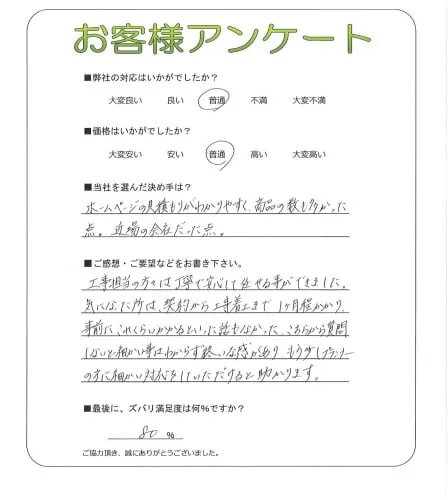 お客様アンケート
■弊社の対応はいかがでしたか？
大変良い 良い 普通 不満 大変不満
■価格はいかがでしたか？
大変安い 安い 普通 高い 大変高い
■当社を選んだ決め手は？
ホームページの見積もりがわかりやすく、商品の数も多かった
点。近場の会社だった点。
■ご感想・ご要望などをお書き下さい。
工事担当の方々は丁寧で安心して任せる事ができました。
気になった所は、契約から工事着工まで1ヶ月程かかり、
事前にこれくらいかかるといった話もなかった、こちらから質問
しないと細かい事はわからず終いな感があり、もう少しプランナー
の方に細かい対応をしていただけると助かります。
■最後に、ズバリ満足度は何%ですか？
80 %
ご協力頂き、誠にありがとうございました。